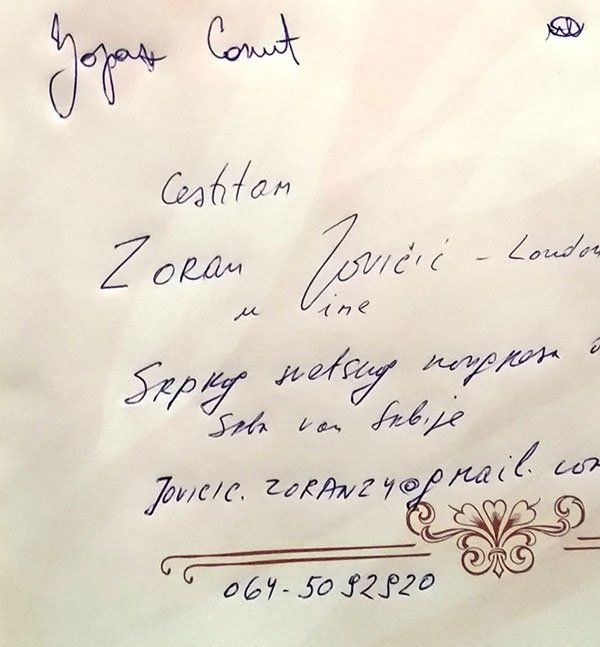 Cestitam
ZORAN Jovičić - London
u ime
Srpkog svetskog kongresa
Srba van Srbije
Jovicic.ZORAN24@gmail.com
064-5092920